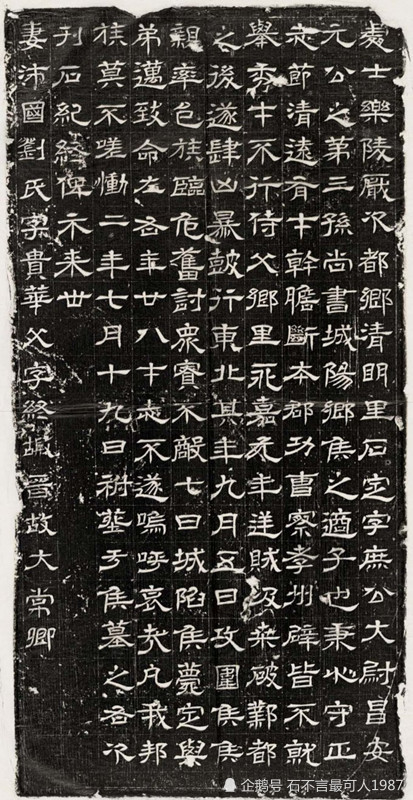 處士樂陵厭次都鄉清明里石定字庶公大尉昌安
元公之第三孫尚書城陽鄉侯之適子也秉心守正
志節清遠有才幹膽斷本郡功曹察孝州辟皆不就
舉秀才不行侍父鄉里永嘉元年逆賊汲桑破鄴都
之後遂肆凶暴鼓行東北其年九月五日攻圍侯侯
親率邑族臨危奮討眾寡不敵七日城陷侯薨定與
弟邁致命左右年廿八才志不遂嗚呼哀哉凡我邦
族莫不嗟慟二年七月十九日祔葬于侯墓之右次
刊石紀終俾示來世
妻沛國劉氏字貴華父字終嘏晉故大常卿
企鹅号 石不言最可人1987